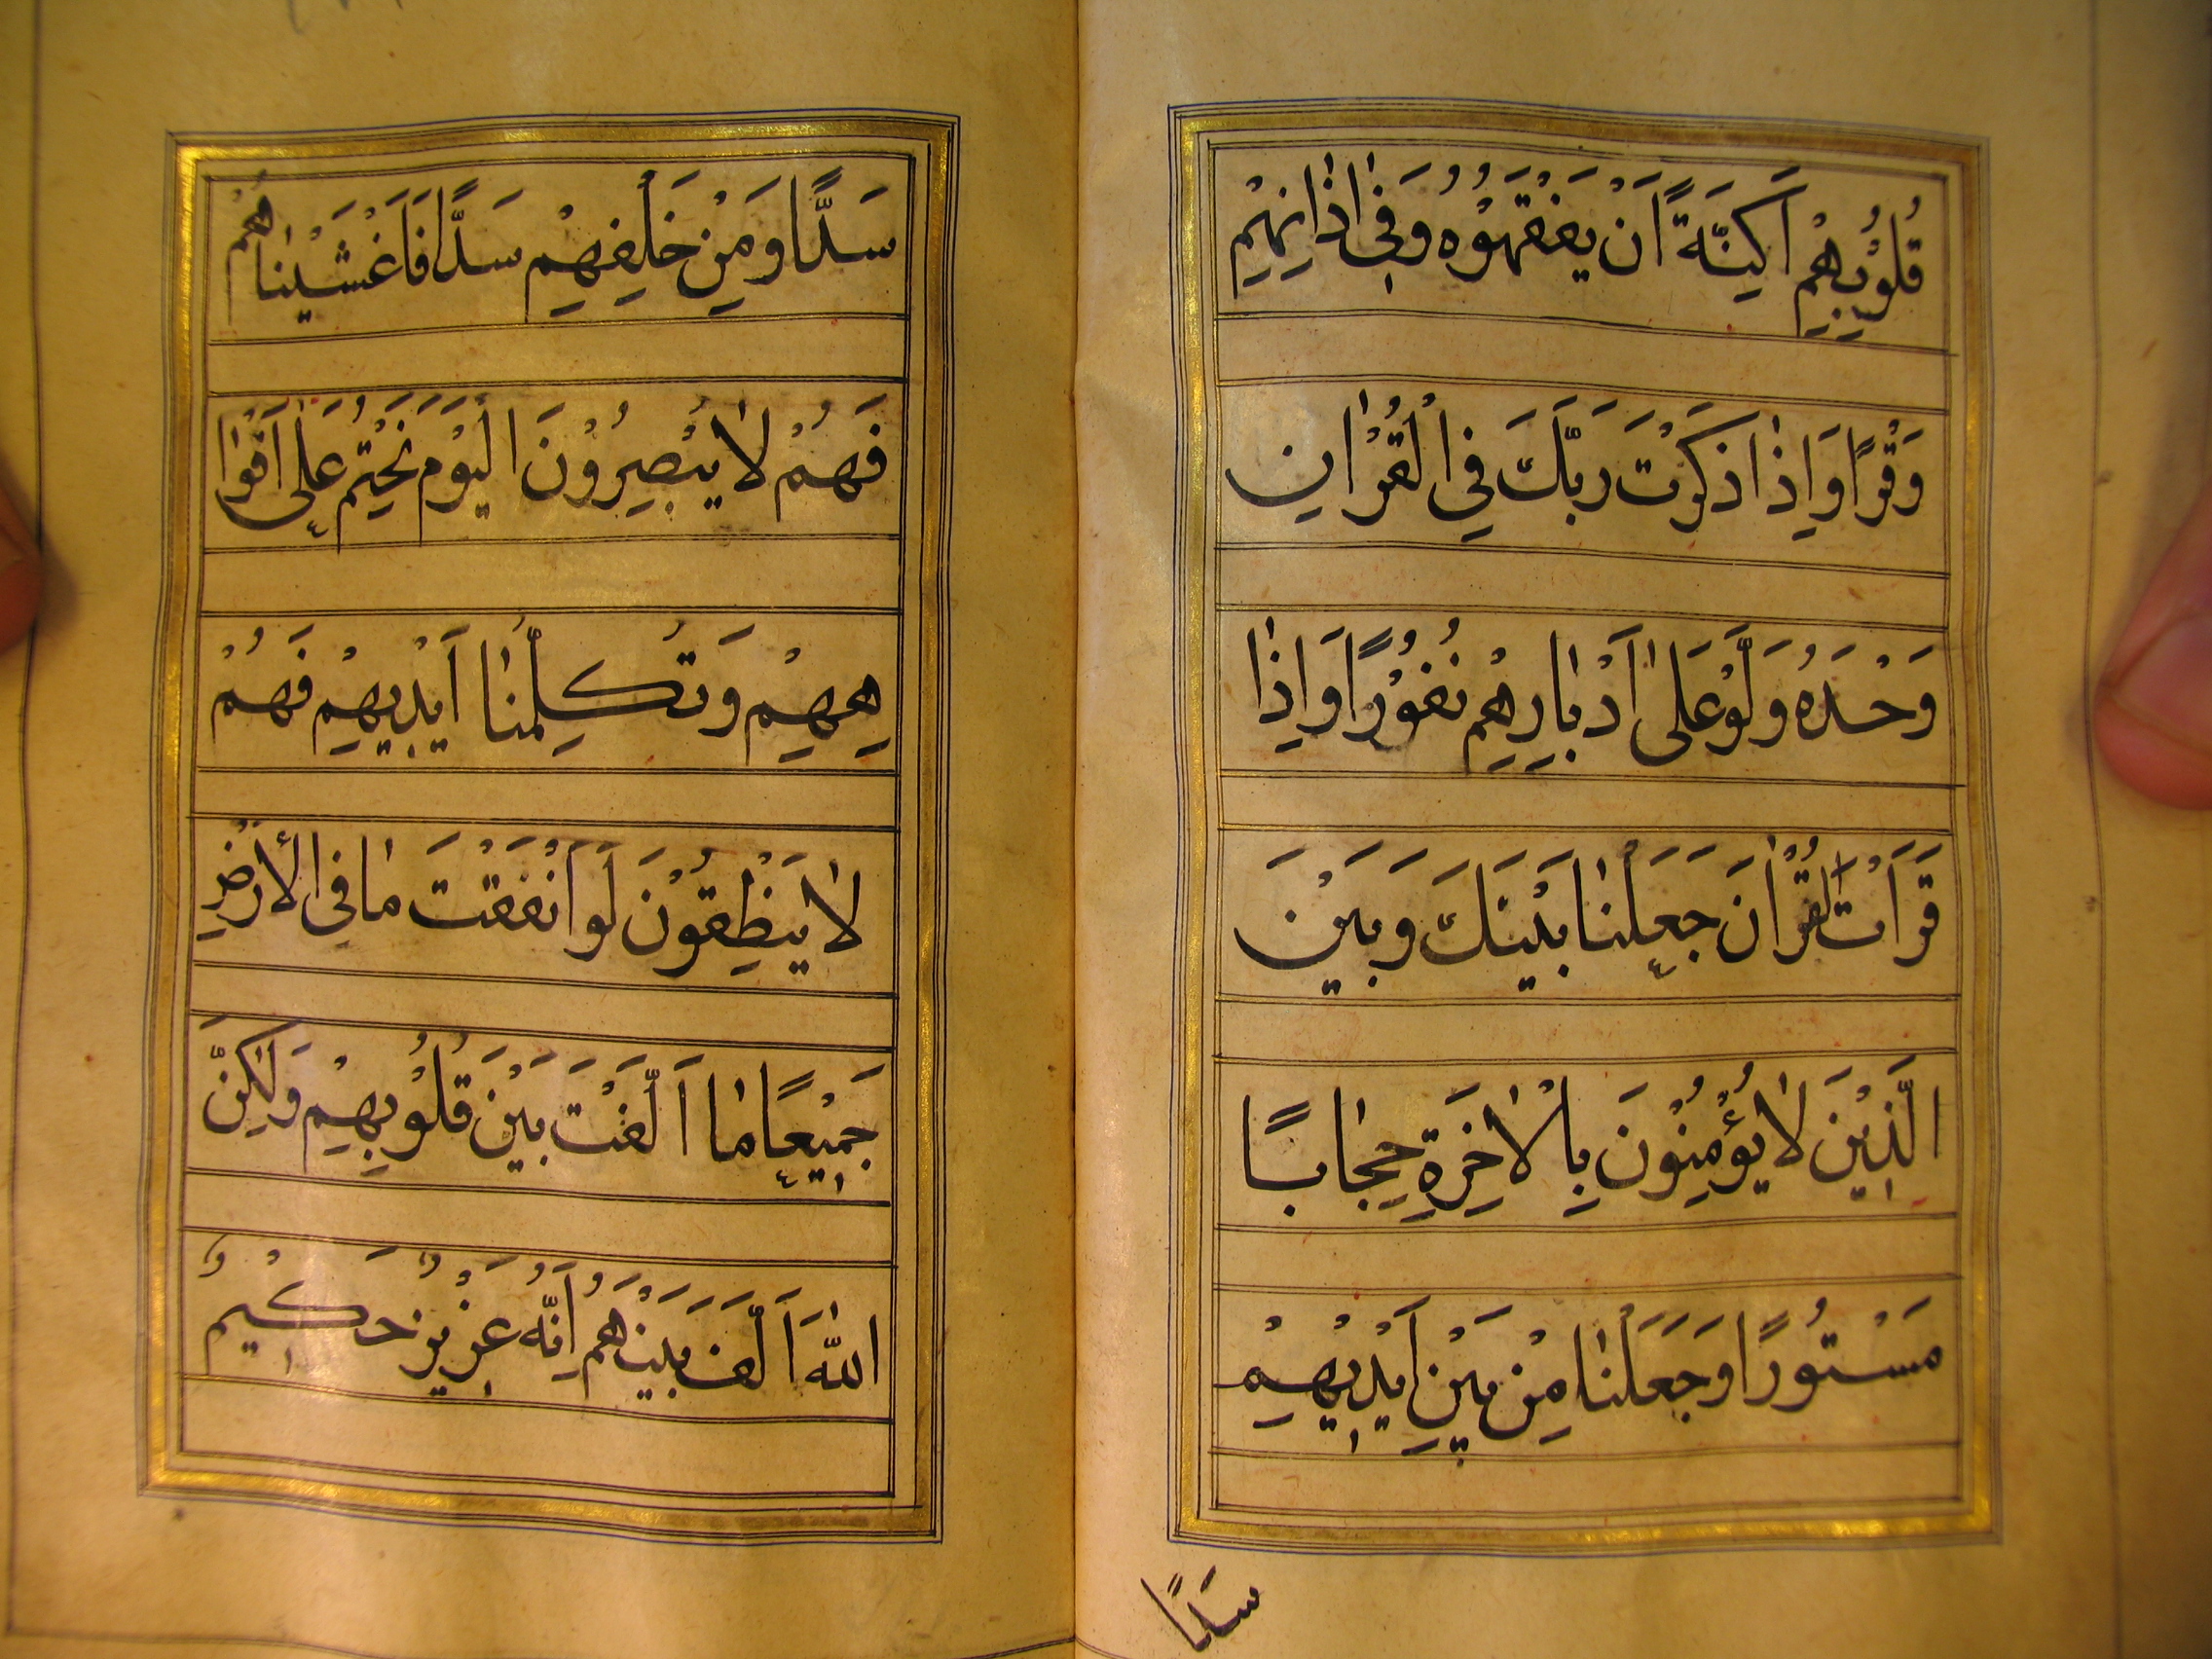 قُلُوْبِهِمْ اَكِنَّةً اَنْ يَفْقَهُوْهُ وَفِىْ اٰذٰانِهِمْ
وَقْرًا وَاِذٰا ذَكَرْتَ رَبَّكَ فِى الْقُرْاٰنِ
وَحْدَهُ وَلَّوْ عَلٰى اَدْبٰارِهِمْ نُفُوْرًا وَاِذٰا
قَرَاْتَ الْقُرْاٰنَ جَعَلْنٰا بَيْنَكَ وَبَيْنَ
الَّذِيْنَ لٰا يُؤْمِنُوْنَ بِالْاٰخِرَةِ حِجٰابًا
مَسْتُوْرًا وَجَعَلْنٰا مِنْ بَيْنِ اَيْدِيْهِمْ
سَدًّا
سَدًّا وَمِنْ خَلْفِهِمْ سَدًّا فَاَغْشَيْنٰاهُمْ
فَهُمْ لٰا يُبْصِرُوْنَ اَلْيَوْمَ نَخْتِمُ عَلٰى اَفْوٰا
هِهِمْ وَتُكَلِّمُنٰا اَيْدِيْهِمْ فَهُمْ
لٰا يَنْطِقُوْنَ لَوْ اَنْفَقْتَ مٰا فِى الْاَرْضِ
جَمِيْعًا مٰا اَلَّفْتَ بَيْنَ قُلُوْبِهِمْ وَلٰكِنَّ
اللّٰهَ اَلَّفَ بَيْنَهُمْ اِنَّهُ عَزِيْزٌ حَكِيْمٌ